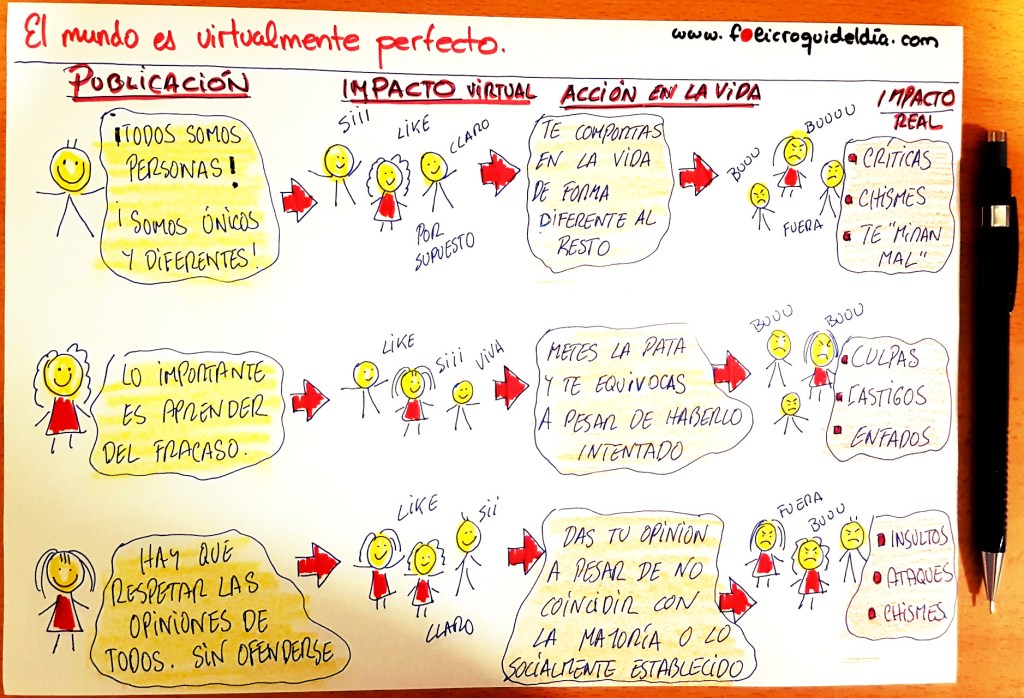 El mundo es virtualmente perfecto.
www.feeicroquideldía.com
PUBLICACIÓN
IMPACTO VIRTUAL
ACCIÓN EN LA VIDA
IMPACTO
REAL
¡TODOS SOMOS
PERSONAS!
¡SOMOS ÚNICOS
Y DIFERENTES!
SIII
LIKE
CLARO
POR
SUPUESTO
TE COMPORTAS
EN LA VIDA
DE FORMA
DIFERENTE AL
RESTO
BUUU
BUUUU
FUERA
CRÍTICAS
CHISMES
TE "MIRAN
MAL"
LO IMPORTANTE
ES APRENDER
DEL FRACASO.
LIKE
SIII
VIVA
METES LA PATA
Y TE EQUIVOCAS
A PESAR DE HABERLO
INTENTADO
BUUU
BUUU
CULPAS
CASTIGOS
ENFADOS
HAY QUE
RESPETAR LAS
OPINIONES DE
TODOS. SIN OFENDERSE
LIKE
SII
CLARO
DAS TU OPINION
A PESAR DE NO
COINCIDIR CON
LA MAYORÍA O LO
SOCIALMENTE ESTABLECIDO
FUERA
BUUU
INSULTOS
ATAQUES
CHISMES